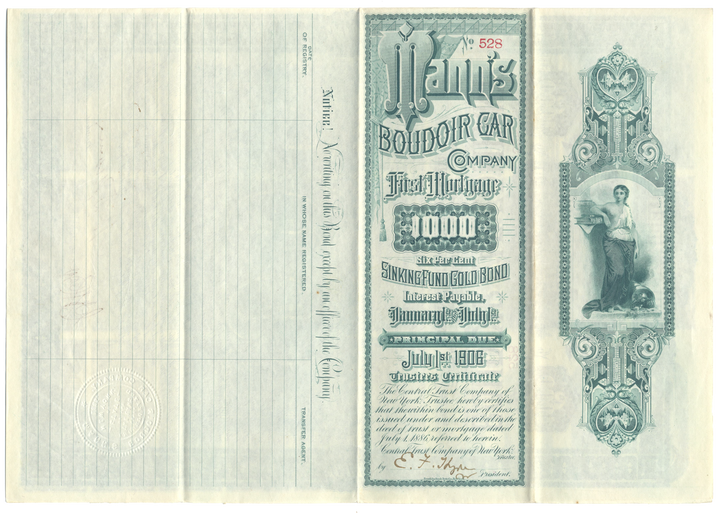 DATE
OF REGISTRY.
IN WHOSE NAME REGISTERED.
TRANSFER AGENT.
Notice! No writing on this Bond except by an officer of the Company
No 528
Mann's
BOUDOIR CAR
COMPANY
First Mortgage
1000
Six Per Cent
SINKING FUND GOLD BOND
Interest Payable,
January 1st and July 1st
PRINCIPAL DUE
July 1st 1906
Trustees Certificate
The Central Trust Company of
New York Trustee hereby certifies
that the within bond is one of those
issued under and described in the
deed of trust or mortgage dated
July 1, 1886, referred to herein.
Central Trust Company of New York
Trustee
by
President.